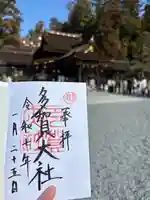 奉拝
多賀大社
令和七年
一月二十五日